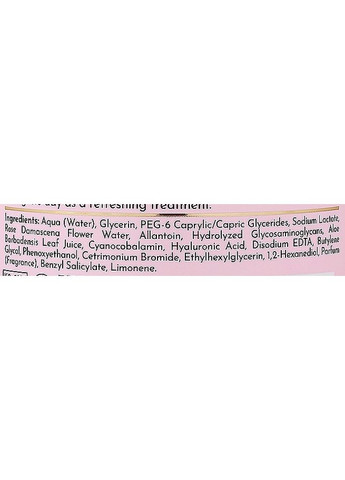 day as a refreshing treatment.
Ingredients: Aqua (Water), Glycerin, PEG-6 Caprylic/Capric Glycerides, Sodium Lactate,
Rose Damascena Flower Water, Allantoin, Hydrolyzed Glycosaminoglycans, Aloe
Barbadensis Leaf Juice, Cyanocobalamin, Hyaluronic Acid, Disodium EDTA, Butylene
Glycol, Phenoxyethanol, Cetrimonium Bromide, Ethylhexylglycerin, 1,2-Hexanediol, Parfum
(Fragrance), Benzyl Salicylate, Limonene.